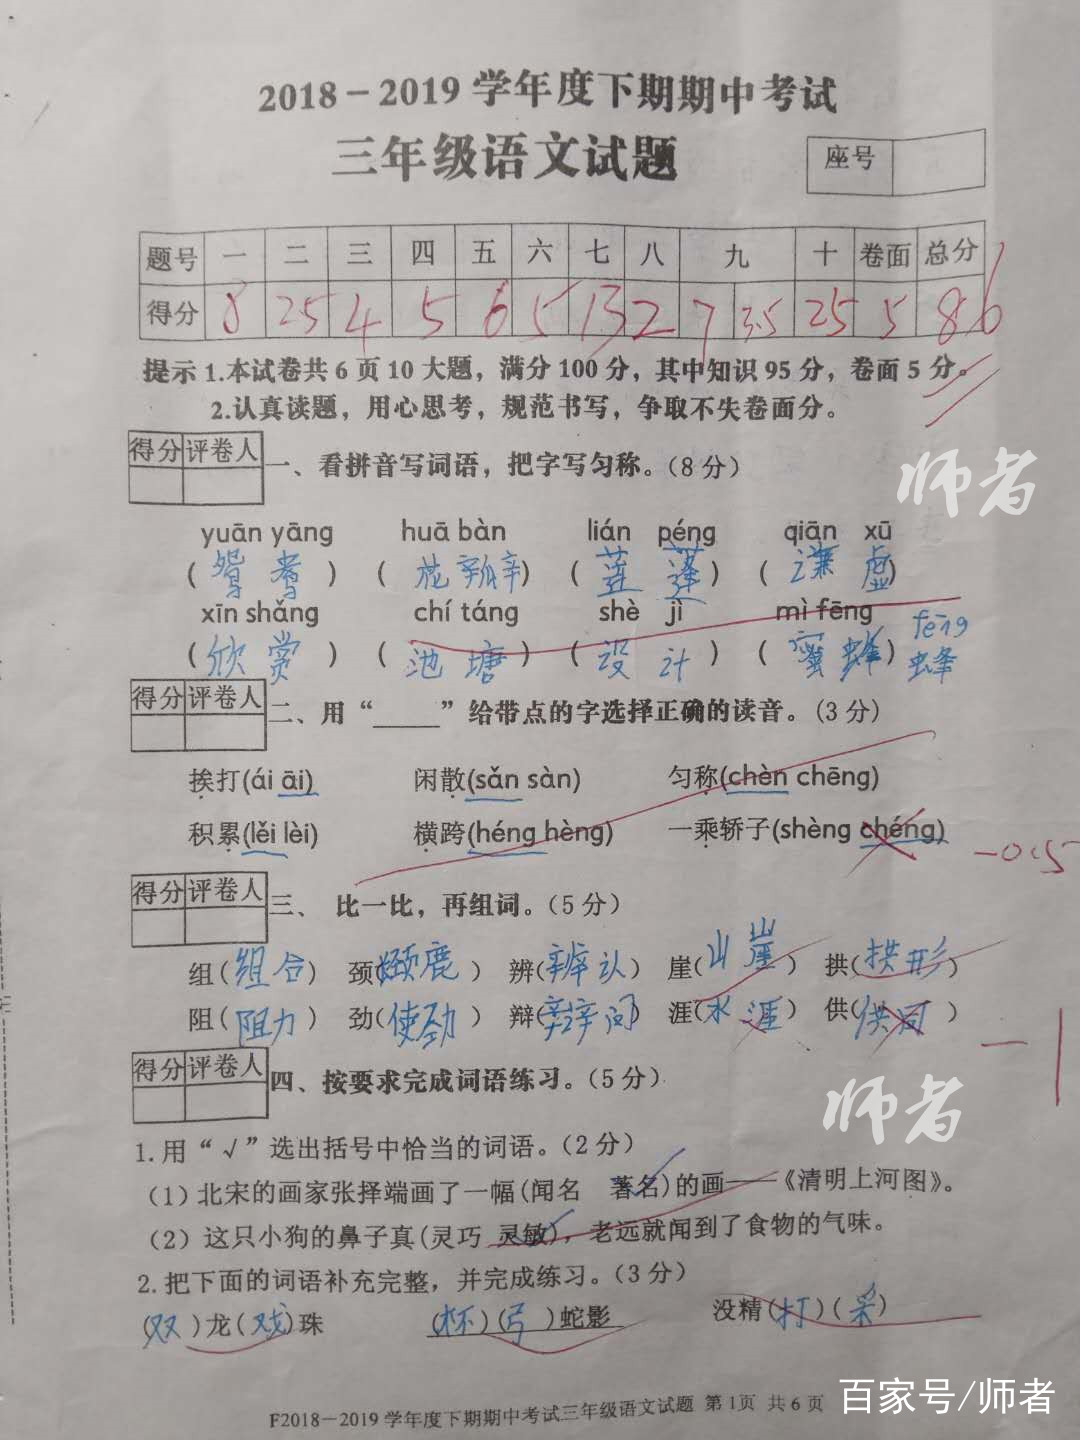 2018－2019 学年度下期期中考试
三年级语文试题
座号
题号 一 二 三 四 五 六 七 八 九 十 卷面 总分
得分 8 25 4 5 6 5 13 2 7 3.5 25 5 86
提示 1.本试卷共 6 页 10 大题，满分 100 分，其中知识 95 分，卷面 5 分。
2.认真读题，用心思考，规范书写，争取不失卷面分。
得分 评卷人
一、看拼音写词语，把字写匀称。（8 分）
师者
yuān yāng huā bàn lián péng qiān xū
( 鸳 鸯 ) ( 花 瓣 ) ( 莲 蓬 ) ( 谦 虚 )
xīn shǎng chí táng shè jì mì fēng fēng
( 欣 赏 ) ( 池 塘 ) ( 设 计 ) ( 蜜 蜂 ) 蜂
得分 评卷人
二、用“____”给带点的字选择正确的读音。（3 分）
挨打(ái āi) 闲散(sǎn sàn) 匀称(chèn chēng)
积累(lěi lèi) 横跨(héng hèng) 一乘轿子(shèng chéng)
-0.5
得分 评卷人
三、 比一比，再组词。（5 分）
组( 组合 ) 颈( 颈鹿 ) 辨( 辨认 ) 崖( 山崖 ) 拱( 拱形 )
阻( 阻力 ) 劲( 使劲 ) 辩( 辩问 ) 涯( 水涯 ) 供( 供同 )
-1
得分 评卷人
四、按要求完成词语练习。（5 分）
师者
1.用“√”选出括号中恰当的词语。（2 分）
（1）北宋的画家张择端画了一幅(闻名 著名)的画——《清明上河图》。
（2）这只小狗的鼻子真(灵巧 灵敏)，老远就闻到了食物的气味。
2.把下面的词语补充完整，并完成练习。（3 分）
(双)龙(戏)珠 (杯)(弓)蛇影 没精(打)(采)
F2018－2019 学年度下期期中考试三年级语文试题 第 1页 共 6 页
百家号/师者